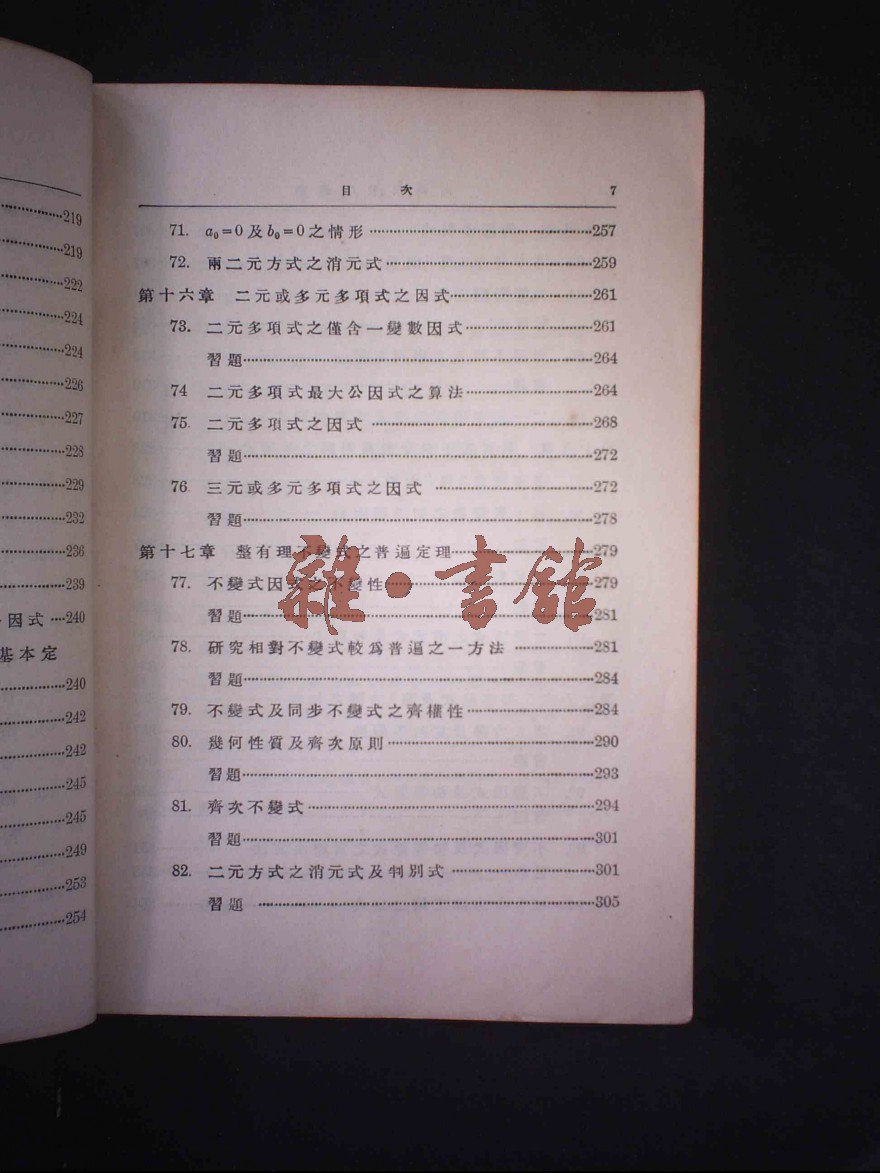 219
219
222
224
224
226
227
228
229
232
236
239
因式····240
基本定
240
242
242
245
245
249
253
254
目 次 7
71. a₀=0及b₀=0之情形········257
72. 兩二元方式之消元式········259
第十六章 二元或多元多項式之因式········261
73. 二元多項式之僅含一變數因式········261
習題········264
74 二元多項式最大公因式之算法········264
75. 二元多項式之因式········268
習題········272
76. 三元或多元多項式之因式········272
習題········278
第十七章 整有理不變式之普遍定理········279
77. 不變式因式之不變性········279
習題········281
78. 研究相對不變式較爲普遍之一方法········281
習題········284
79. 不變式及同步不變式之齊權性········284
80. 幾何性質及齊次原則········290
習題········293
81. 齊次不變式········294
習題········301
82. 二元方式之消元式及判別式········301
習題········305
雜·書館